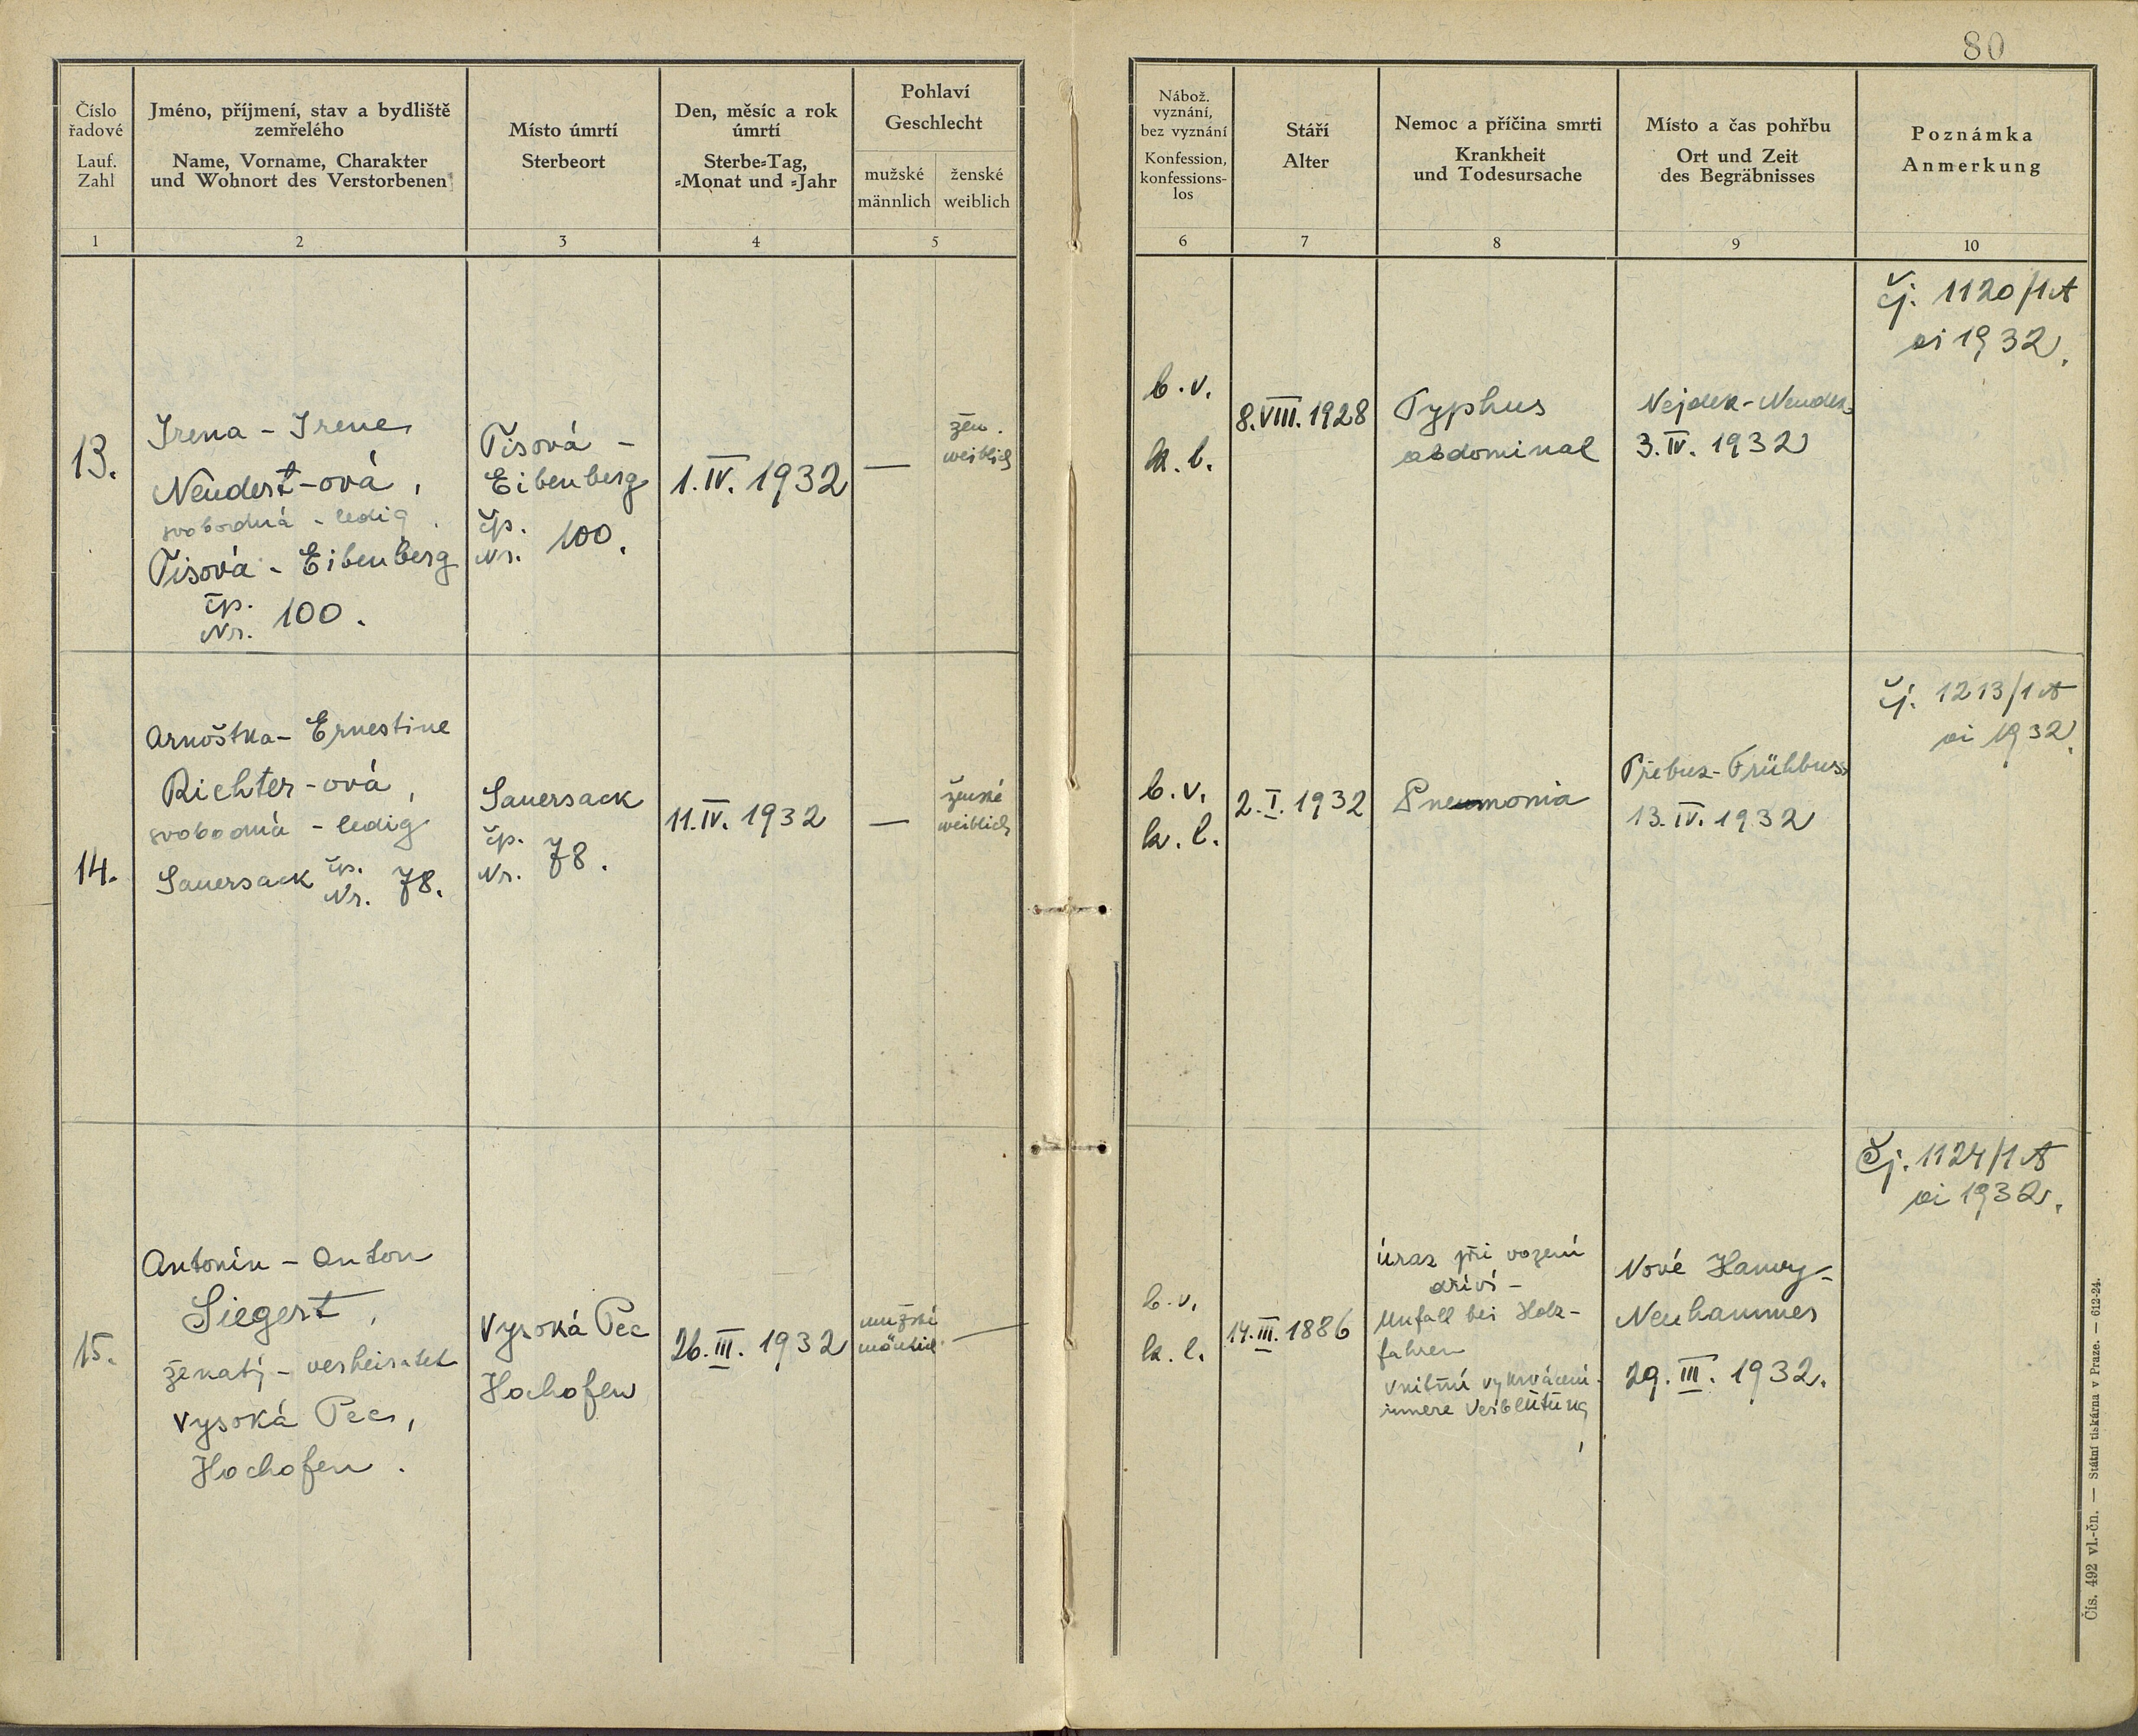 80
Číslo
řadové
Lauf.
Zahl
Jméno, příjmení, stav a bydliště
zemřelého
Name, Vorname, Charakter
und Wohnort des Verstorbenen
Místo úmrtí
Sterbeort
Den, měsíc a rok
úmrtí
Sterbe-Tag,
-Monat und -Jahr
Pohlaví
Geschlecht
mužské
männlich
ženské
weiblich
Nábož.
vyznání,
bez vyznání
Konfession,
konfessions-
los
Stáří
Alter
Nemoc a příčina smrti
Krankheit
und Todesursache
Místo a čas pohřbu
Ort und Zeit
des Begräbnisses
Poznámka
Anmerkung
1
2
3
4
5
6
7
8
9
10
13.
Irena - Irene
Neudert-ová,
svobodná - ledig.
Tisová - Eibenberg
čp.
Nr. 100.
Tisová -
Eibenberg
čp.
Nr. 100.
1. IV. 1932
—
žen.
weiblich
b. v.
k. l.
8. VIII. 1928
Typhus
abdominal
Nejdek - Neudek
3. IV. 1932
čj. 1120/1A
ai 1932.
14.
Arnoštka - Ernestine
Richter-ová,
svobodná - ledig
Sauersack čp.
Nr. 78.
Sauersack
čp.
Nr. 78.
11. IV. 1932
—
ženské
weiblich
b. v.
k. l.
2. I. 1932
Pneumonia
Přebuz - Frühbuss
13. IV. 1932
čj. 1213/1A
ai 1932.
15.
Antonín - Anton
Siegert,
ženatý - verheiratet
Vysoká Pec,
Hochofen.
Vysoká Pec
Hochofen
26. III. 1932
mužské
männlich
—
b. v.
k. l.
14. III. 1886
Úraz při vození
dříví -
Unfall bei Holz-
fahren
vnitřní vykrvácení -
innere Verblutung
Nové Hamry -
Neuhammer
29. III. 1932.
Čj. 1124/1A
ai 1932.
Čís. 492 vl.-čn. — Státní tiskárna v Praze. — 612-24.